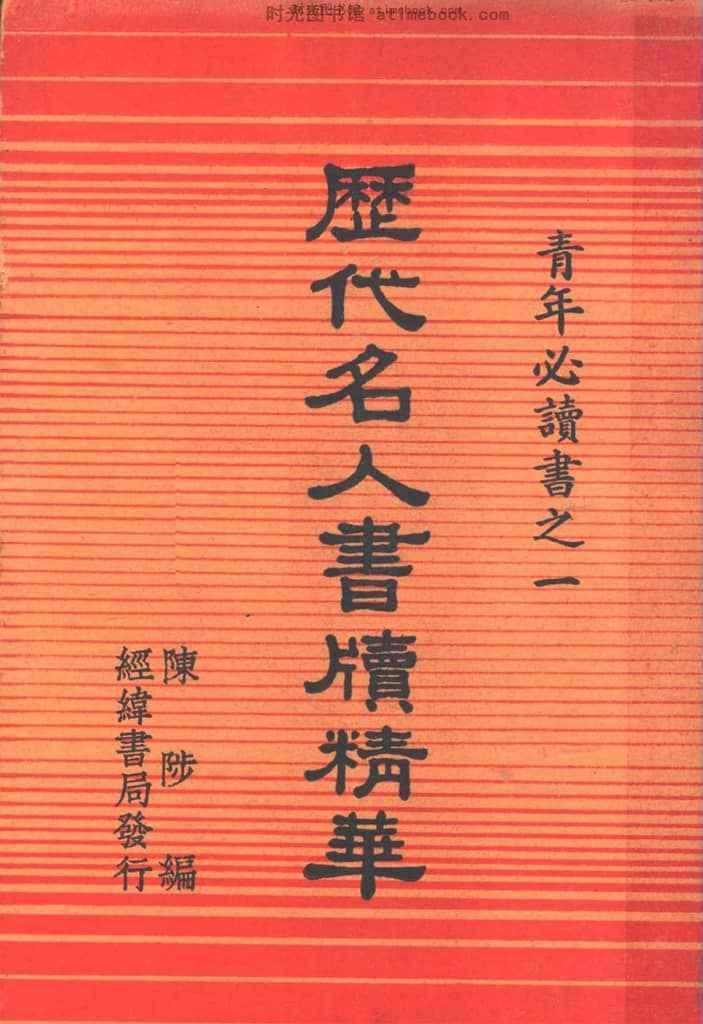 时光图书馆 atimebook.com
青年必讀書之一
歷代名人書牘精華
陳陟編
經緯書局發行